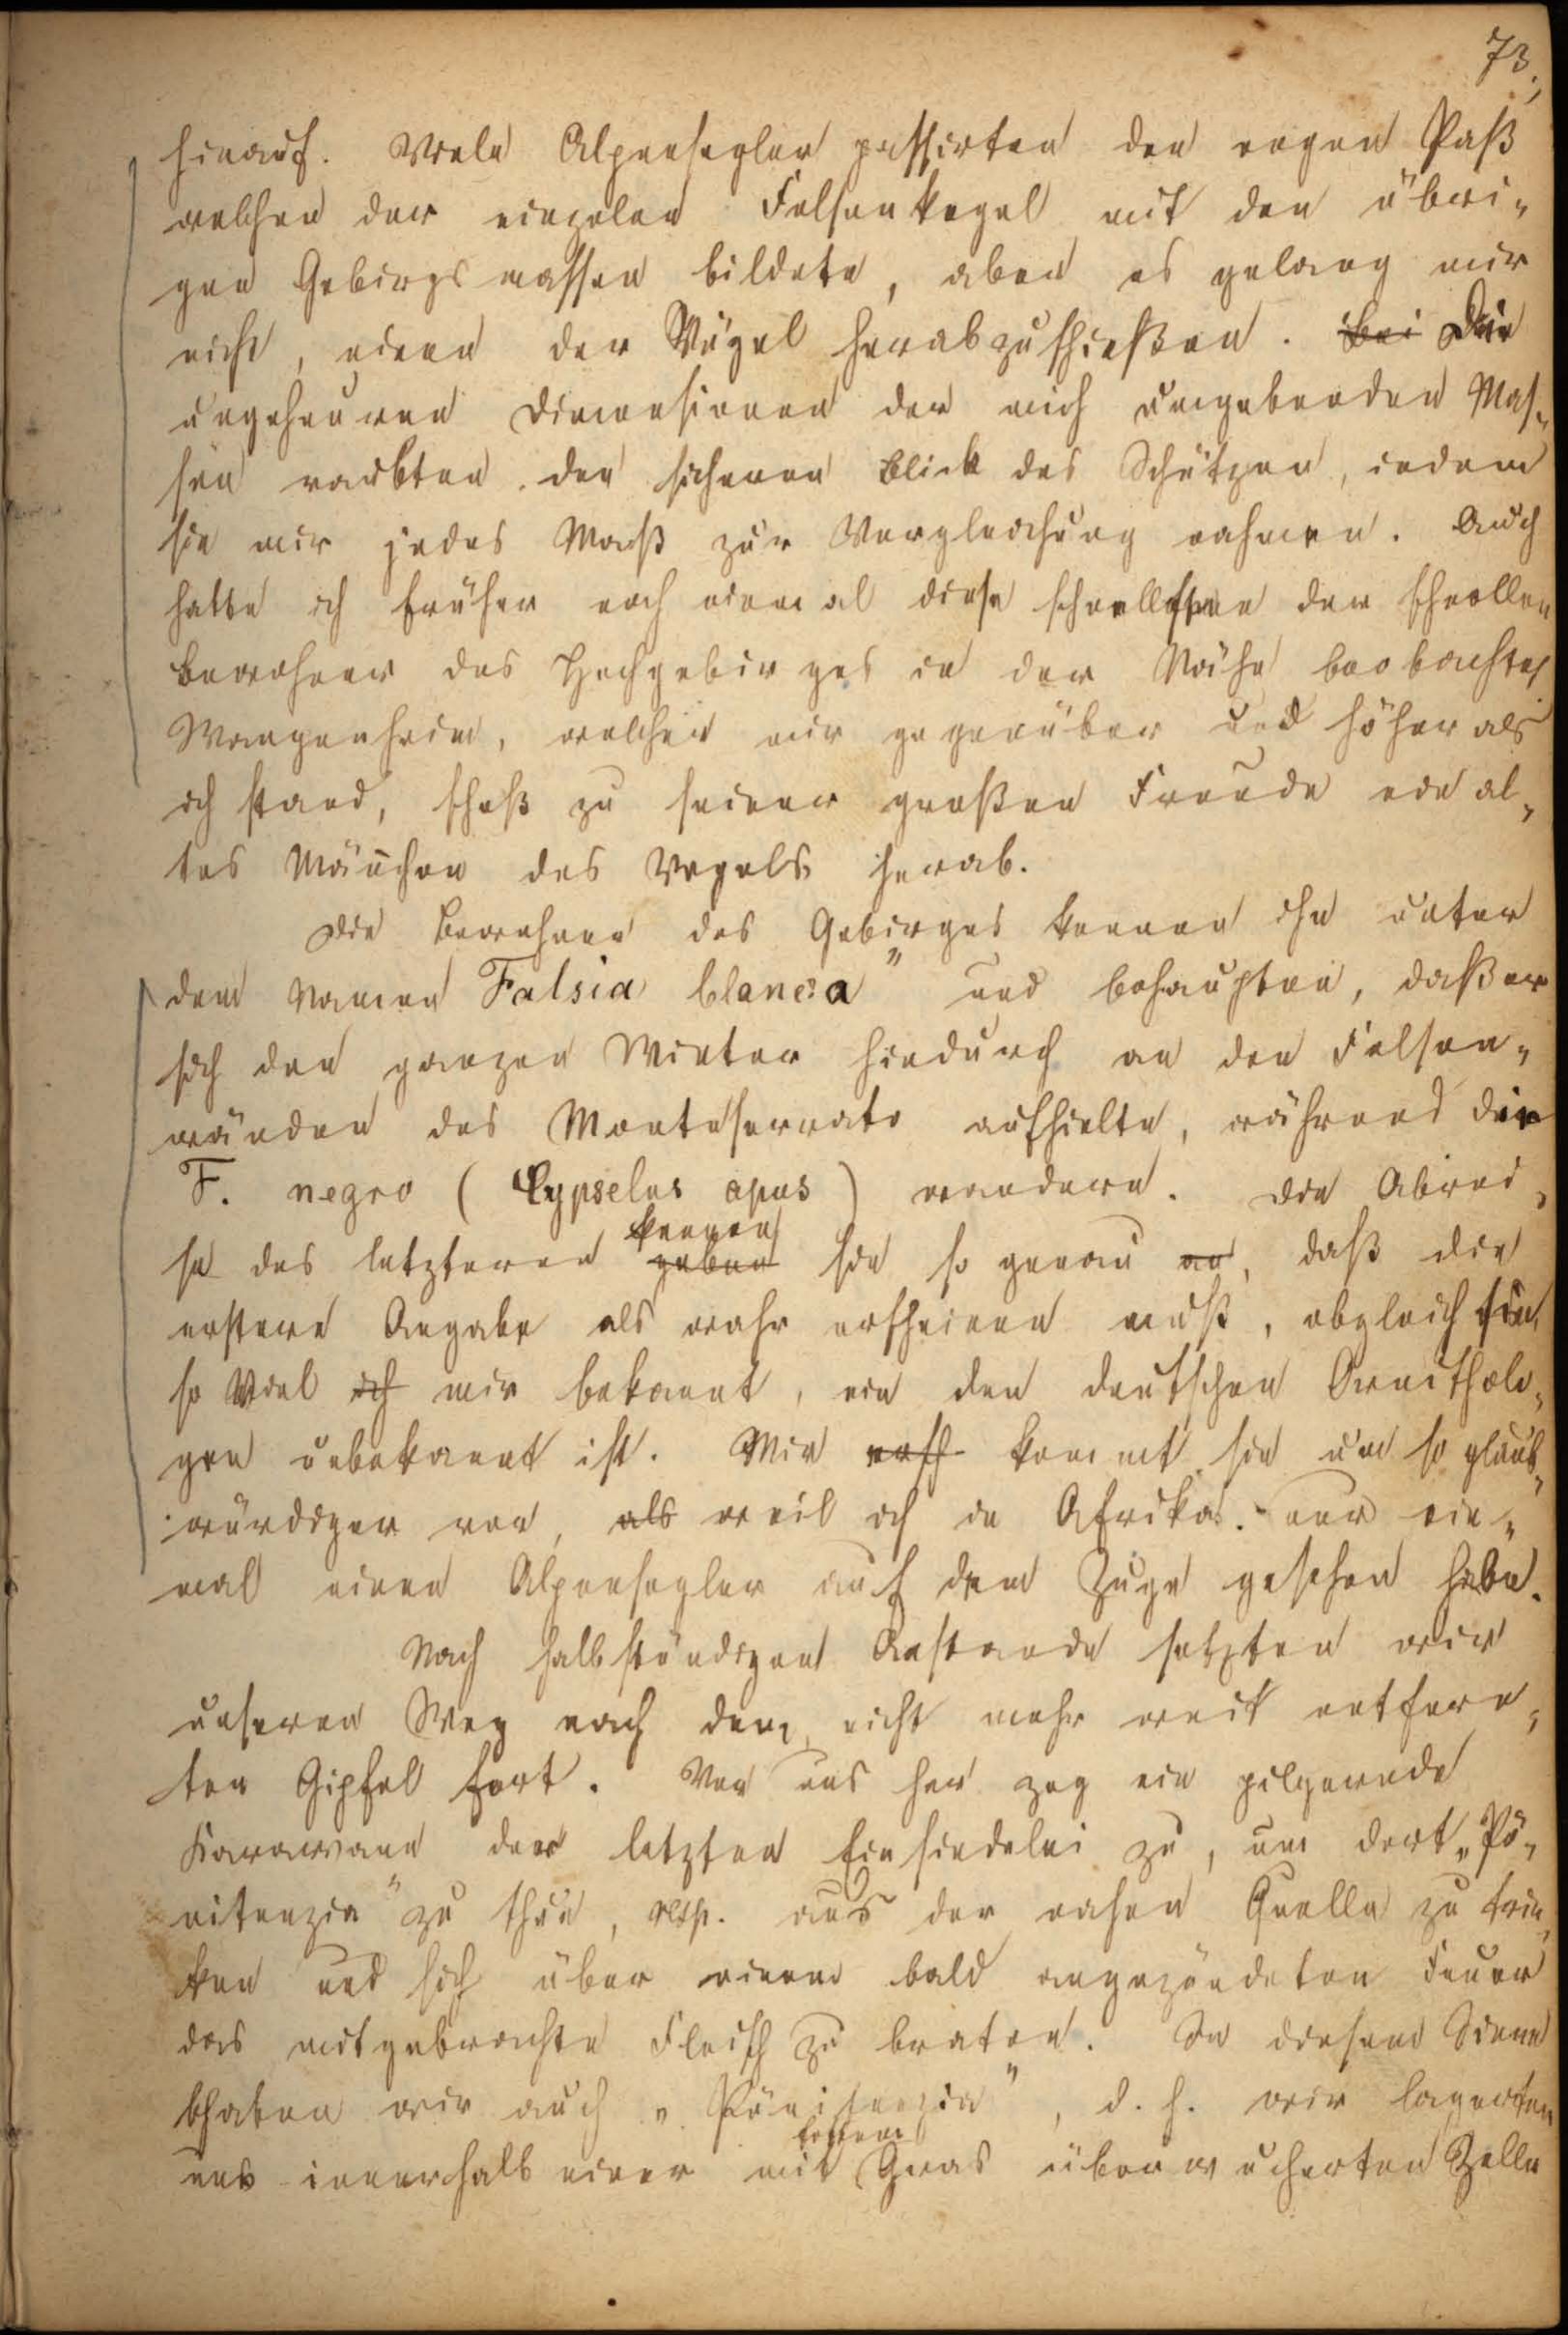 73.
hinauf. Viele Alpensegler passirten den engen Paß
welchen der einzelne Felsenkegel mit den übri„
gen Gebirgsmassen bildete, aber es gelang mir
nicht, einen der Vögel herabzuschießen. Bei Die
ungeheuren Dimensionen der mich umgebenden Mas„
sen raubten den sicheren Blick des Schützen, indem
sie mir jedes Maß zur Vergleichung nahmen. Auch
hatte ich früher noch niemal diese schnellsten der schnellen
Bewohner des Hochgebirges in der Nähe beobachtet
Wangenheim, welcher mir gegenüber und höher als
ich stand, schoß zu seiner großen Freude ein al„
tes Mänchen des Vogels herab.
Die Bewohner des Gebirges kennen ihn unter
dem Namen Falsia blanca" und behaupten, daß er
sich den ganzen Winter hindurch an den Felsen„
wänden des Monteserrato aufhielte, während die
F. negro (Cypselus apus) wandere. Die Abrei„
kennen
se des letzteren geben sie so genau an, daß die
erstere Angabe als wahr erscheinen muß, obgleich sie,
so Viel ich mir bekannt, von den deutschen Ornitholo„
gen unbekannt ist. Mir ersch kommt sie um so glaub„
würdiger vor, als weil ich in Afrika nur ein„
mal einen Alpensegler auf dem Zuge gesehen habe.
Nach halbstündigem Anstande setzten wir
unseren Weg nach dem nicht mehr weit entfern„
ten Gipfel fort. Vor uns her zog ein pilgernde
Karawane der letzten Einsiedelei zu, um dort „Pö„
nitenzia" zu thun, resp. aus der nahen Quelle zu trin„
ken und sich über einem bald angezündeten Feuer
das mitgebrachte Fleisch zu braten. In diesem Sinne
thaten wir auch „Pönitenzia", d. h. wir lagerten
uns innerhalb einer mit Gras überwucherten Zelle